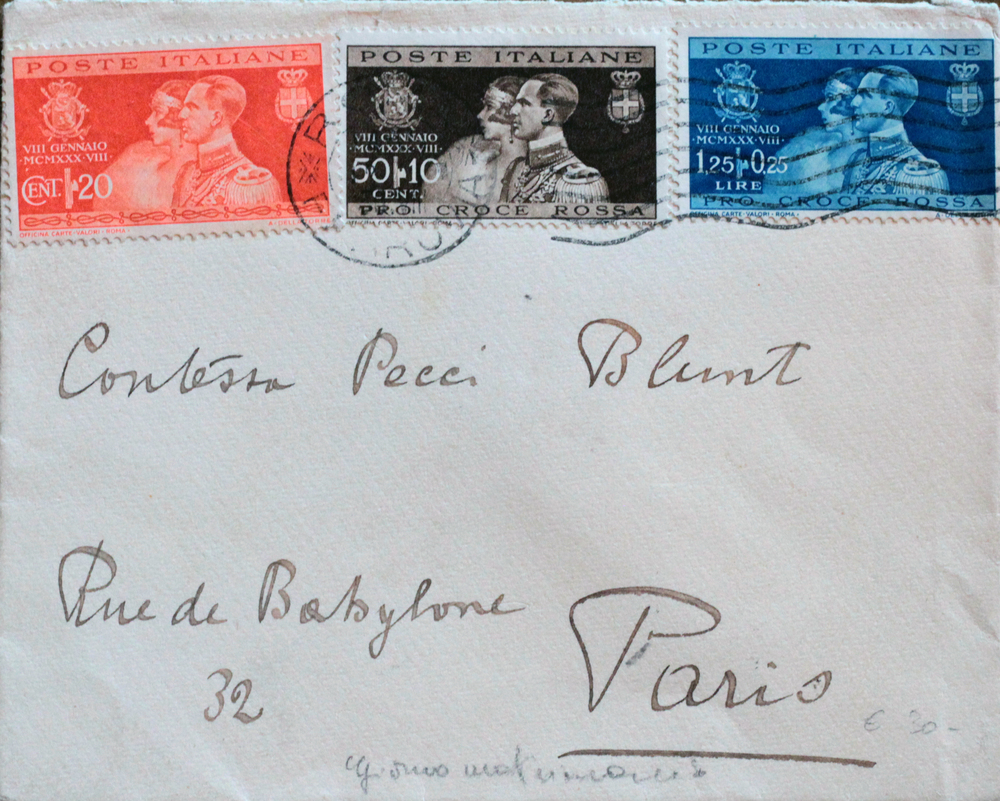 POSTE ITALIANE
VIII GENNAIO
·MCMXXX·VIII·
CENT. 20
OFFICINA CARTE-VALORI - ROMA
POSTE ITALIANE
VIII GENNAIO
·MCMXXX·VIII·
50+10
CENT.
PRO CROCE ROSSA
OFFICINA CARTE-VALORI - ROMA
POSTE ITALIANE
VIII GENNAIO
·MCMXXX·VIII·
1,25+0,25
LIRE
PRO CROCE ROSSA
OFFICINA CARTE-VALORI - ROMA
Contessa Pecci Blunt
Rue de Babylone
32
Paris
€ 30-
Giorno matrimonio